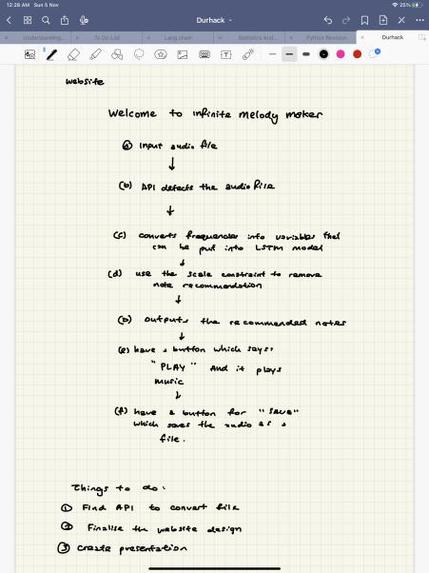 12:28 AM Sun 5 Nov
25%
Durhack
Understanding...
To Do List
Lang chain
Statistics And...
Python Revision
Durhack
Website
Welcome to infinite melody maker
(a) Input audio file
(b) API detects the audio file
(c) converts frequencies into variables that
can be put into LSTM model
(d) use the scale constraint to remove
note recommendation
(D) outputs the recommended notes
(e) have a button which says:
"PLAY" And it plays
music
(f) have a button for "save"
which saves the audio as a
file.
Things to do:
① Find API to convert file
② Finalise the website design
③ Create presentation